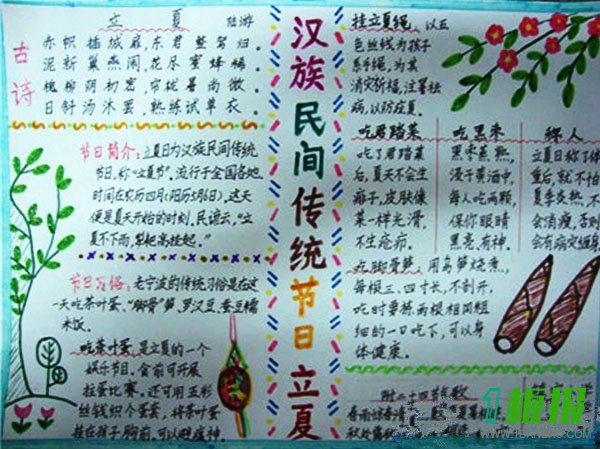 古诗
立夏 陆游
赤帜插城扉，东君整驾归。
泥新巢燕闹，花尽蜜蜂稀。
槐柳阴初密，帘栊暑尚微。
日斜汤沐罢，熟练试单衣。
节日简介：立夏日为汉族民间传统
节日，称“立夏节”，流行于全国各地，
时间在农历四月（阳历5月6日），这天
便是夏天开始的时刻。民谚云，“立
夏不下雨，犁耙高挂起。”
节日习俗：老宁波的传统习俗是在这
一天吃茶叶蛋、“脚骨”笋、罗汉豆、蚕豆糯
米饭。
吃茶叶蛋是立夏的一个
娱乐节目，食前可开展
拄蛋比赛。还可用五彩
丝线织个蛋套，将茶叶蛋
挂在孩子胸前，可以避瘟神。
汉族民间传统节日立夏
挂立夏绳，以五
色丝线为孩子
系手绳，为其
消灾祈福，注暑祛
病，以防疰夏。
吃君踏菜
吃了君踏菜
后，夏天不会生
痱子，皮肤像
菜一样光滑，
不生疮疖。
吃黑枣
黑枣蒸熟，
浸于黄酒中，
每人吃两颗，
保你眼睛
黑亮，有神。
秤人
立夏日称了体
重后，就不怕
夏季炎热，不
会消瘦，否则
会有病灾缠身
吃脚骨笋，用乌笋烧煮，
每根三、四寸长，不剖开，
吃时要拣两根相同粗
细的一口吃下，可以身
体健康。
附二十四节气歌
1板报